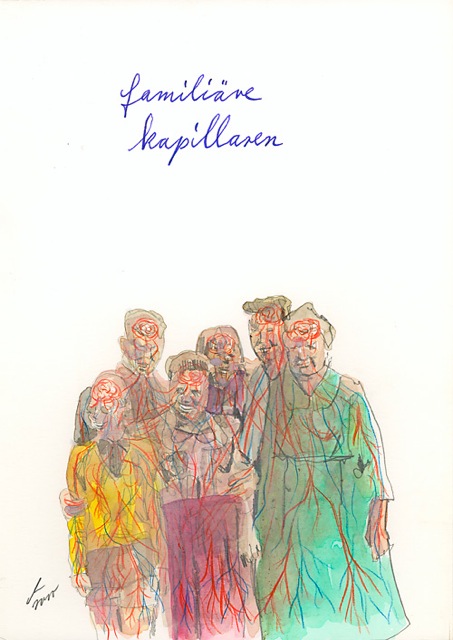 familiäre
kapillaren